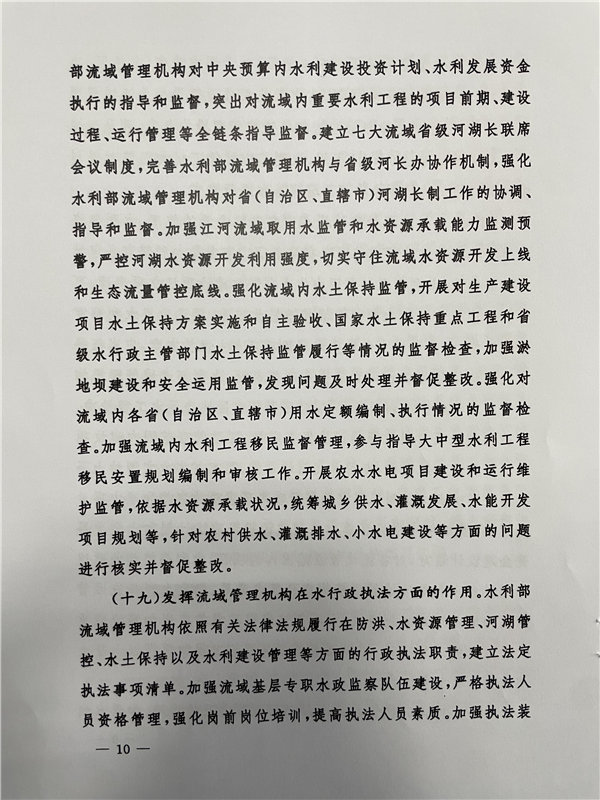 部流域管理机构对中央预算内水利建设投资计划、水利发展资金
执行的指导和监督,突出对流域内重要水利工程的项目前期、建设
过程、运行管理等全链条指导监督。建立七大流域省级河湖长联席
会议制度,完善水利部流域管理机构与省级河长办协作机制,强化
水利部流域管理机构对省(自治区、直辖市)河湖长制工作的协调、
指导和监督。加强江河流域取用水监管和水资源承载能力监测预
警,严控河湖水资源开发利用强度,切实守住流域水资源开发上线
和生态流量管控底线。强化流域内水土保持监管,开展对生产建设
项目水土保持方案实施和自主验收、国家水土保持重点工程和省
级水行政主管部门水土保持监管履行等情况的监督检查,加强淤
地坝建设和安全运用监管,发现问题及时处理并督促整改。强化对
流域内各省(自治区、直辖市)用水定额编制、执行情况的监督检
查。加强流域内水利工程移民监督管理,参与指导大中型水利工程
移民安置规划编制和审核工作。开展农水水电项目建设和运行维
护监管,依据水资源承载状况,统筹城乡供水、灌溉发展、水能开发
项目规划等,针对农村供水、灌溉排水、小水电建设等方面的问题
进行核实并督促整改。
(十九)发挥流域管理机构在水行政执法方面的作用。水利部
流域管理机构依照有关法律法规履行在防洪、水资源管理、河湖管
控、水土保持以及水利建设管理等方面的行政执法职责,建立法定
执法事项清单。加强流域基层专职水政监察队伍建设,严格执法人
员资格管理,强化岗前岗位培训,提高执法人员素质。加强执法装
— 10 —